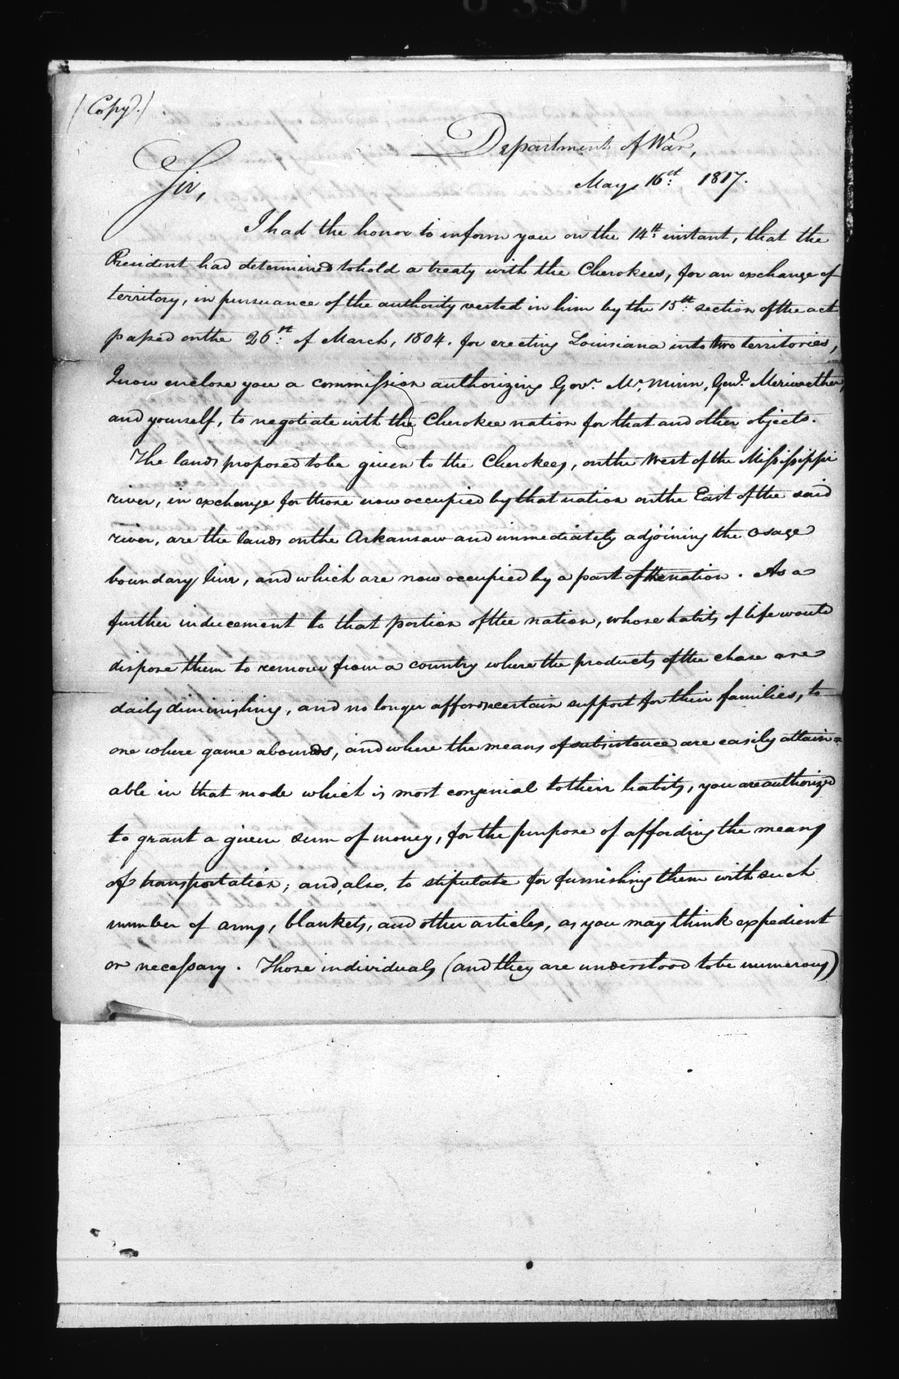 (Copy.)
Department of War,
May 16th 1817.
Sir,
I had the honor to inform you on the 14th instant, that the
President had determined to hold a treaty with the Cherokees, for an exchange of
territory, in pursuance of the authority vested in him by the 15th section of the act
passed on the 26th of March, 1804. for erecting Louisiana into two territories,
I now enclose you a commission authorizing Govr. Mc.Minn, Genl. Meriwether,
and yourself, to negotiate with the Cherokee nation for that and other objects.
The lands proposed to be given to the Cherokees, on the West of the Mississippi
river, in exchange for those now occupied by that nation on the East of the said
river, are the lands on the Arkansaw and immediately adjoining the Osage
boundary line, and which are now occupied by a part of the nation. As a
further inducement to that portion of the nation, whose habits of life would
dispose them to remove from a country where the products of the chase are
daily diminishing, and no longer afford certain support for their families, to
one where game abounds, and where the means of subsistence are easily attain=
able in that mode which is most congenial to their habits, you are authorized
to grant a given sum of money, for the purpose of affording the means
of transportation; and, also, to stipulate for furnishing them with such
number of arms, blankets, and other articles, as you may think expedient
or necessary. Those individuals (and they are understood to be numerous)